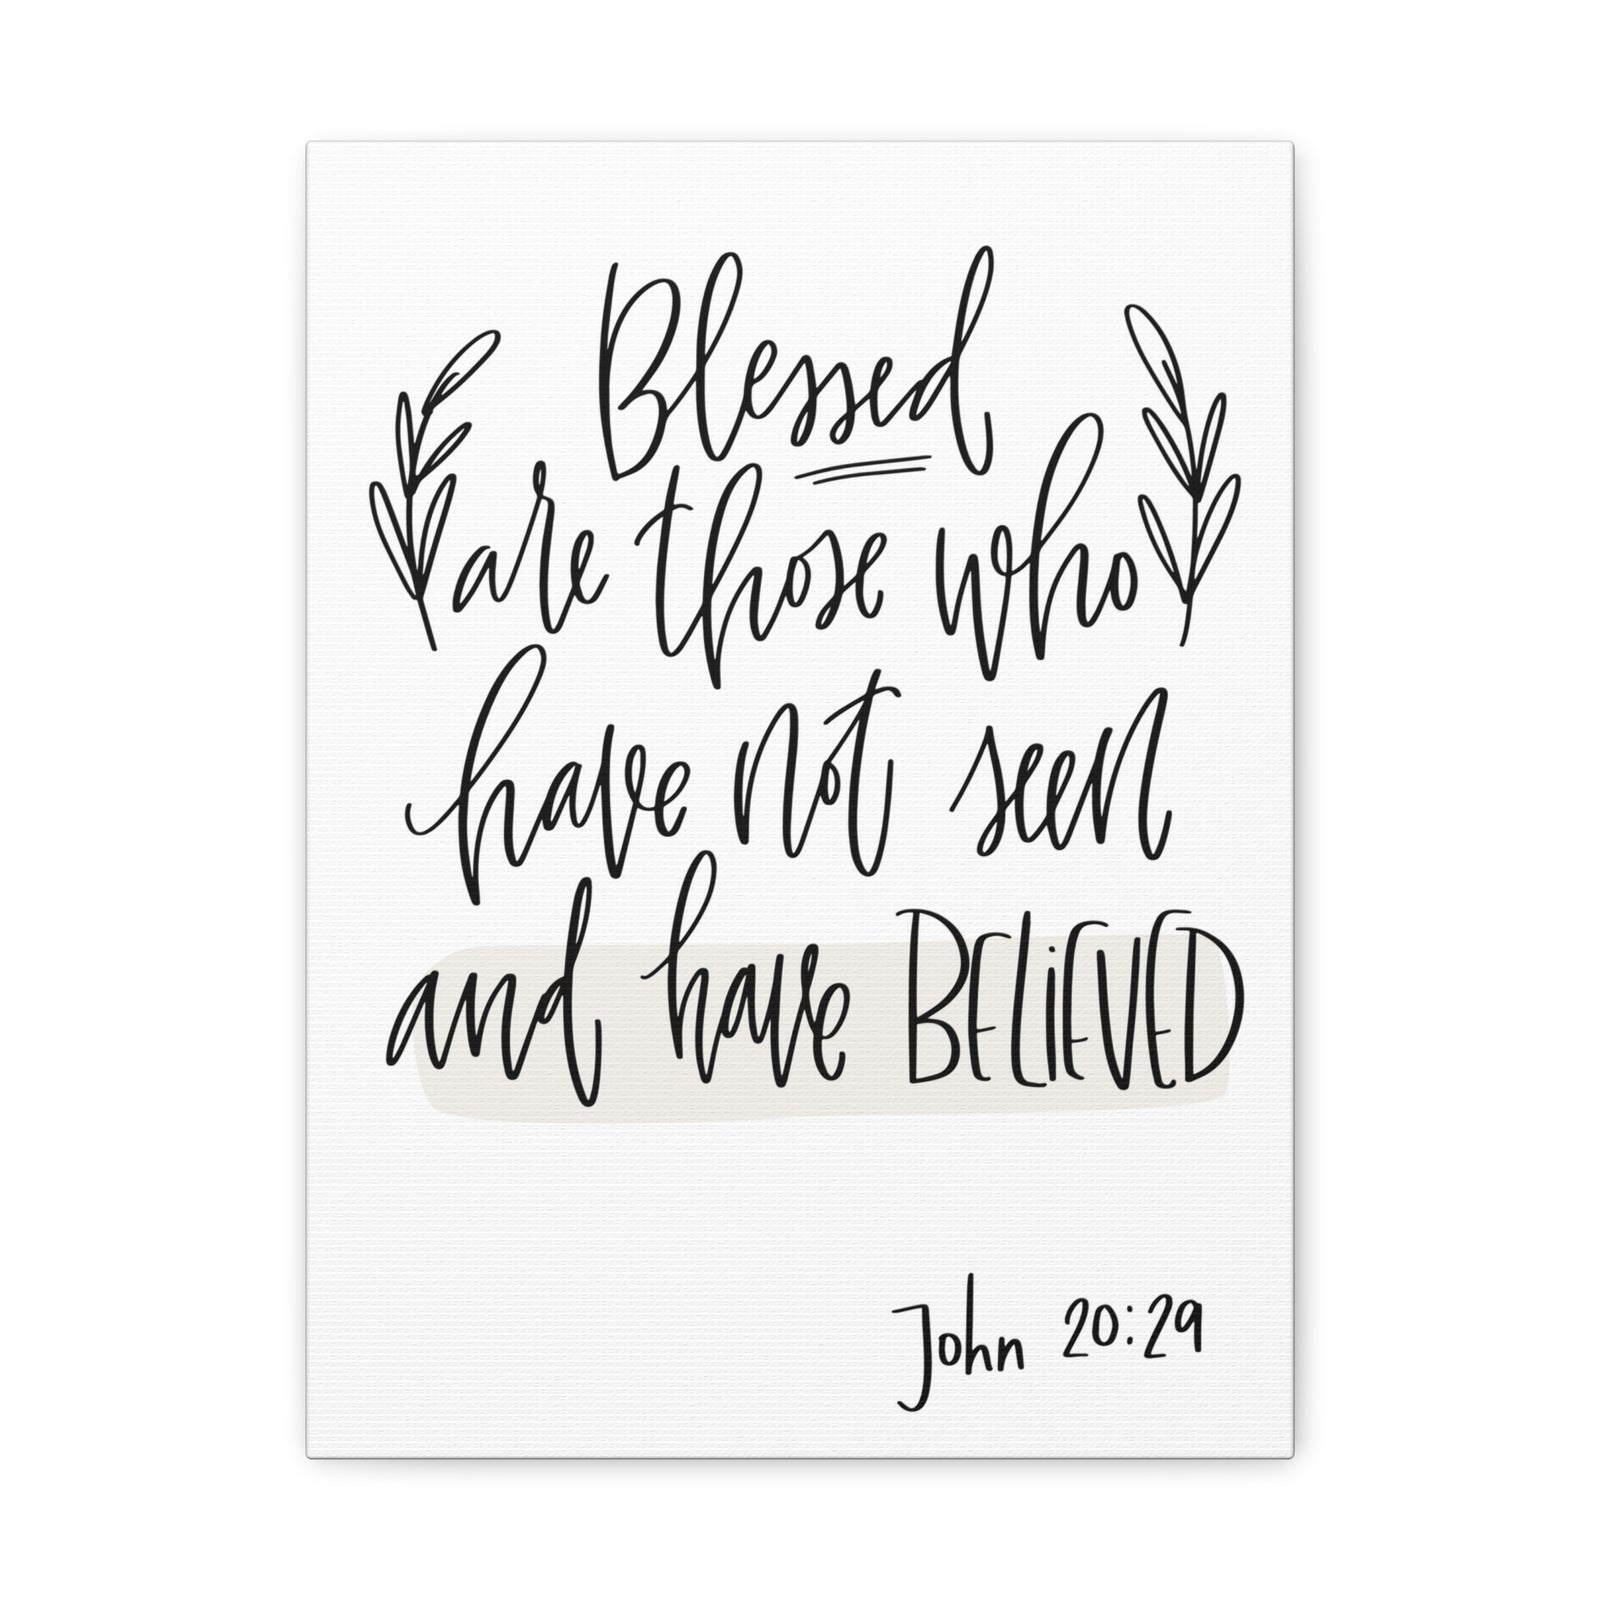 Blessed
are those who
have not seen
and have BELiEVED
John 20:29